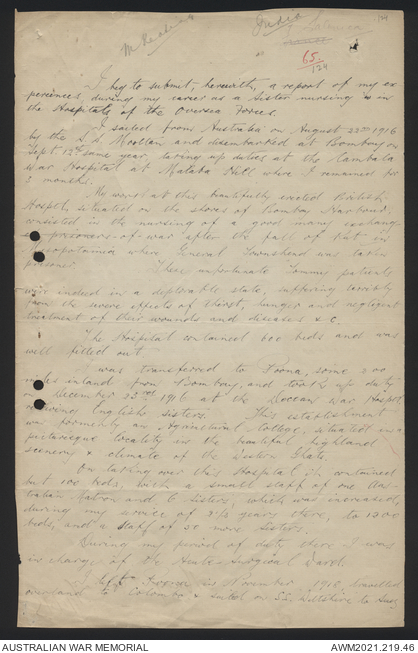 India
Salonica
65.
124
I beg to submit, herewith, a report of my ex
periences during my career as a Sister nursing in
the Hospitals of the Oversea Forces.
I sailed from Australia on August 22nd 1916
by the S.S. Mooltan and disembarked at Bombay on
Sept 13th same year, taking up duties at the
War Hospital at Malaba Hill where I remained for
3 months.
My work at this beautifully erected British
Hospital situated on the shores of Bombay Harbour,
consisted in the nursing of a good many exchang-
prisoners of war after the fall of Kut in
Mesopotamia where General Townshend was taken
prisoner. These unfortunate Tommy patients
were indeed in a deplorable state, suffering terribly
from the severe effects of thirst, hunger and negligent
treatment of their wounds and diseases & c.
The Hospital contained 600 beds and was
well fitted out.
I was transferred to Poona, some 200
miles inland from Bombay, and took up duty
on December 22nd 1916 at the Deccan War Hospt
relieving English sisters. This establishment
was formerly an Agricultural College, situated in a
picturesque locality in the beautiful highland
scenery & climate of the Western Ghats.
On taking over this Hospital it contained
but 100 beds, with a small staff of one Aus
tralian Matron and 6 sisters, which was increased,
during my service of years there, to 1200
beds, and a staff of 50 more sisters.
During my period of duty there I was
in charge of the Acute Surgical Ward.
I left in November 1918, travelled
overland to Colombo & sailed on S.S. Wiltshire to Aus
AUSTRALIAN WAR MEMORIAL
AWM2021.219.46